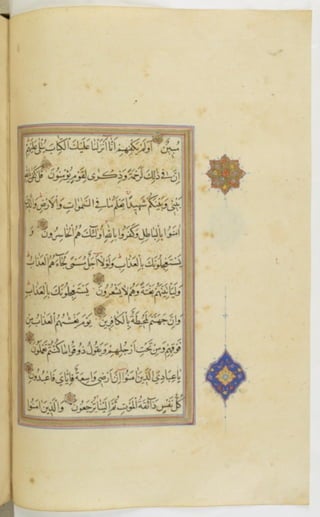 مُبِينٌ اَوَلَمْ يَكْفِهِمْ اَنَّا اَنْزَلْنَا عَلَيْكَ الْكِتَابَ يُتْلٰى عَلَيْهِمْ
اِنَّ فِي ذٰلِكَ لَرَحْمَةً وَذِكْرٰى لِقَوْمٍ يُؤْمِنُونَ قُلْ كَفٰى بِاللهِ
بَيْنِي وَبَيْنَكُمْ شَهِيدًا يَعْلَمُ مَا فِي السَّمٰوَاتِ وَالْاَرْضِ وَالَّذِينَ
اٰمَنُوا بِالْبَاطِلِ وَكَفَرُوا بِاللهِ اُولٰئِكَ هُمُ الْخَاسِرُونَ وَ
يَسْتَعْجِلُونَكَ بِالْعَذَابِ وَلَوْلَا اَجَلٌ مُسَمًّى لَجَاءَهُمُ الْعَذَابُ
وَلَيَأْتِيَنَّهُمْ بَغْتَةً وَهُمْ لَا يَشْعُرُونَ يَسْتَعْجِلُونَكَ بِالْعَذَابِ
وَاِنَّ جَهَنَّمَ لَمُحِيطَةٌ بِالْكَافِرِينَ يَوْمَ يَغْشٰيهُمُ الْعَذَابُ مِنْ
فَوْقِهِمْ وَمِنْ تَحْتِ اَرْجُلِهِمْ وَيَقُولُ ذُوقُوا مَا كُنْتُمْ تَعْمَلُونَ
يَا عِبَادِيَ الَّذِينَ اٰمَنُوا اِنَّ اَرْضِي وَاسِعَةٌ فَاِيَّايَ فَاعْبُدُونِ
كُلُّ نَفْسٍ ذَائِقَةُ الْمَوْتِ ثُمَّ اِلَيْنَا تُرْجَعُونَ وَالَّذِينَ اٰمَنُوا